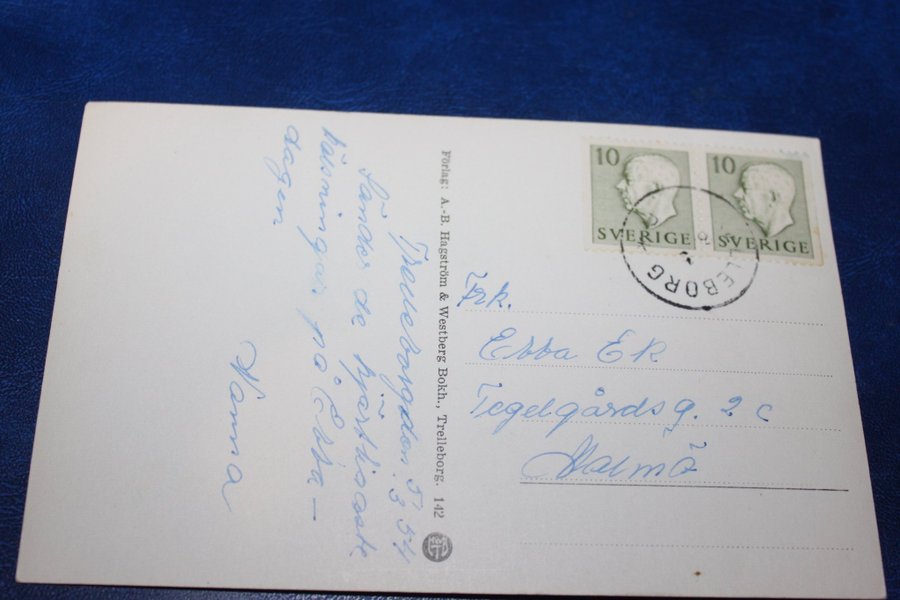 Trelleborg den 5/3 54
Sänder de hjärtligaste
hälsningar på Ebba-
dagen
Nanna
Förlag: A.-B. Hagström & Westberg Bokh., Trelleborg. 142
10 10
SVERIGE SVERIGE
LLEBORG
Frk.
Ebba Ek
Tegelgårdsg. 2 c
Malmö